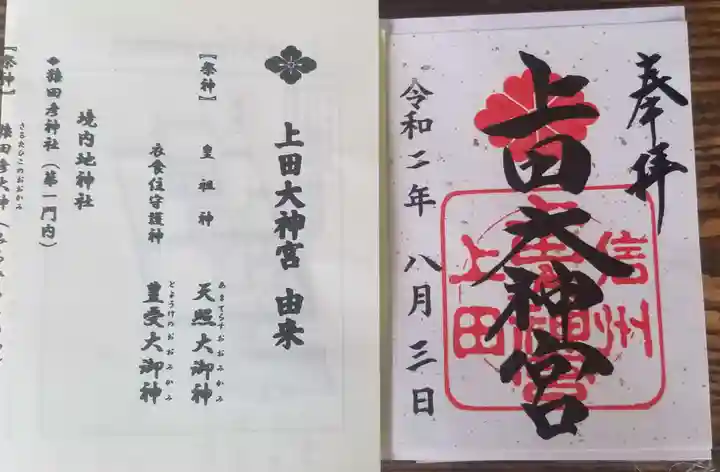 奉拝
上田大神宮
信州
上田
令和二年 八月三日
上田大神宮 由来
【祭神】 皇祖神 天照大御神
あまてらすおおみかみ
衣食住守護神 豊受大御神
とようけのおおみかみ
境内地神社
◆猿田彦神社(第一門内)
【祭神】 猿田彦大神
さるたひこのおおかみ